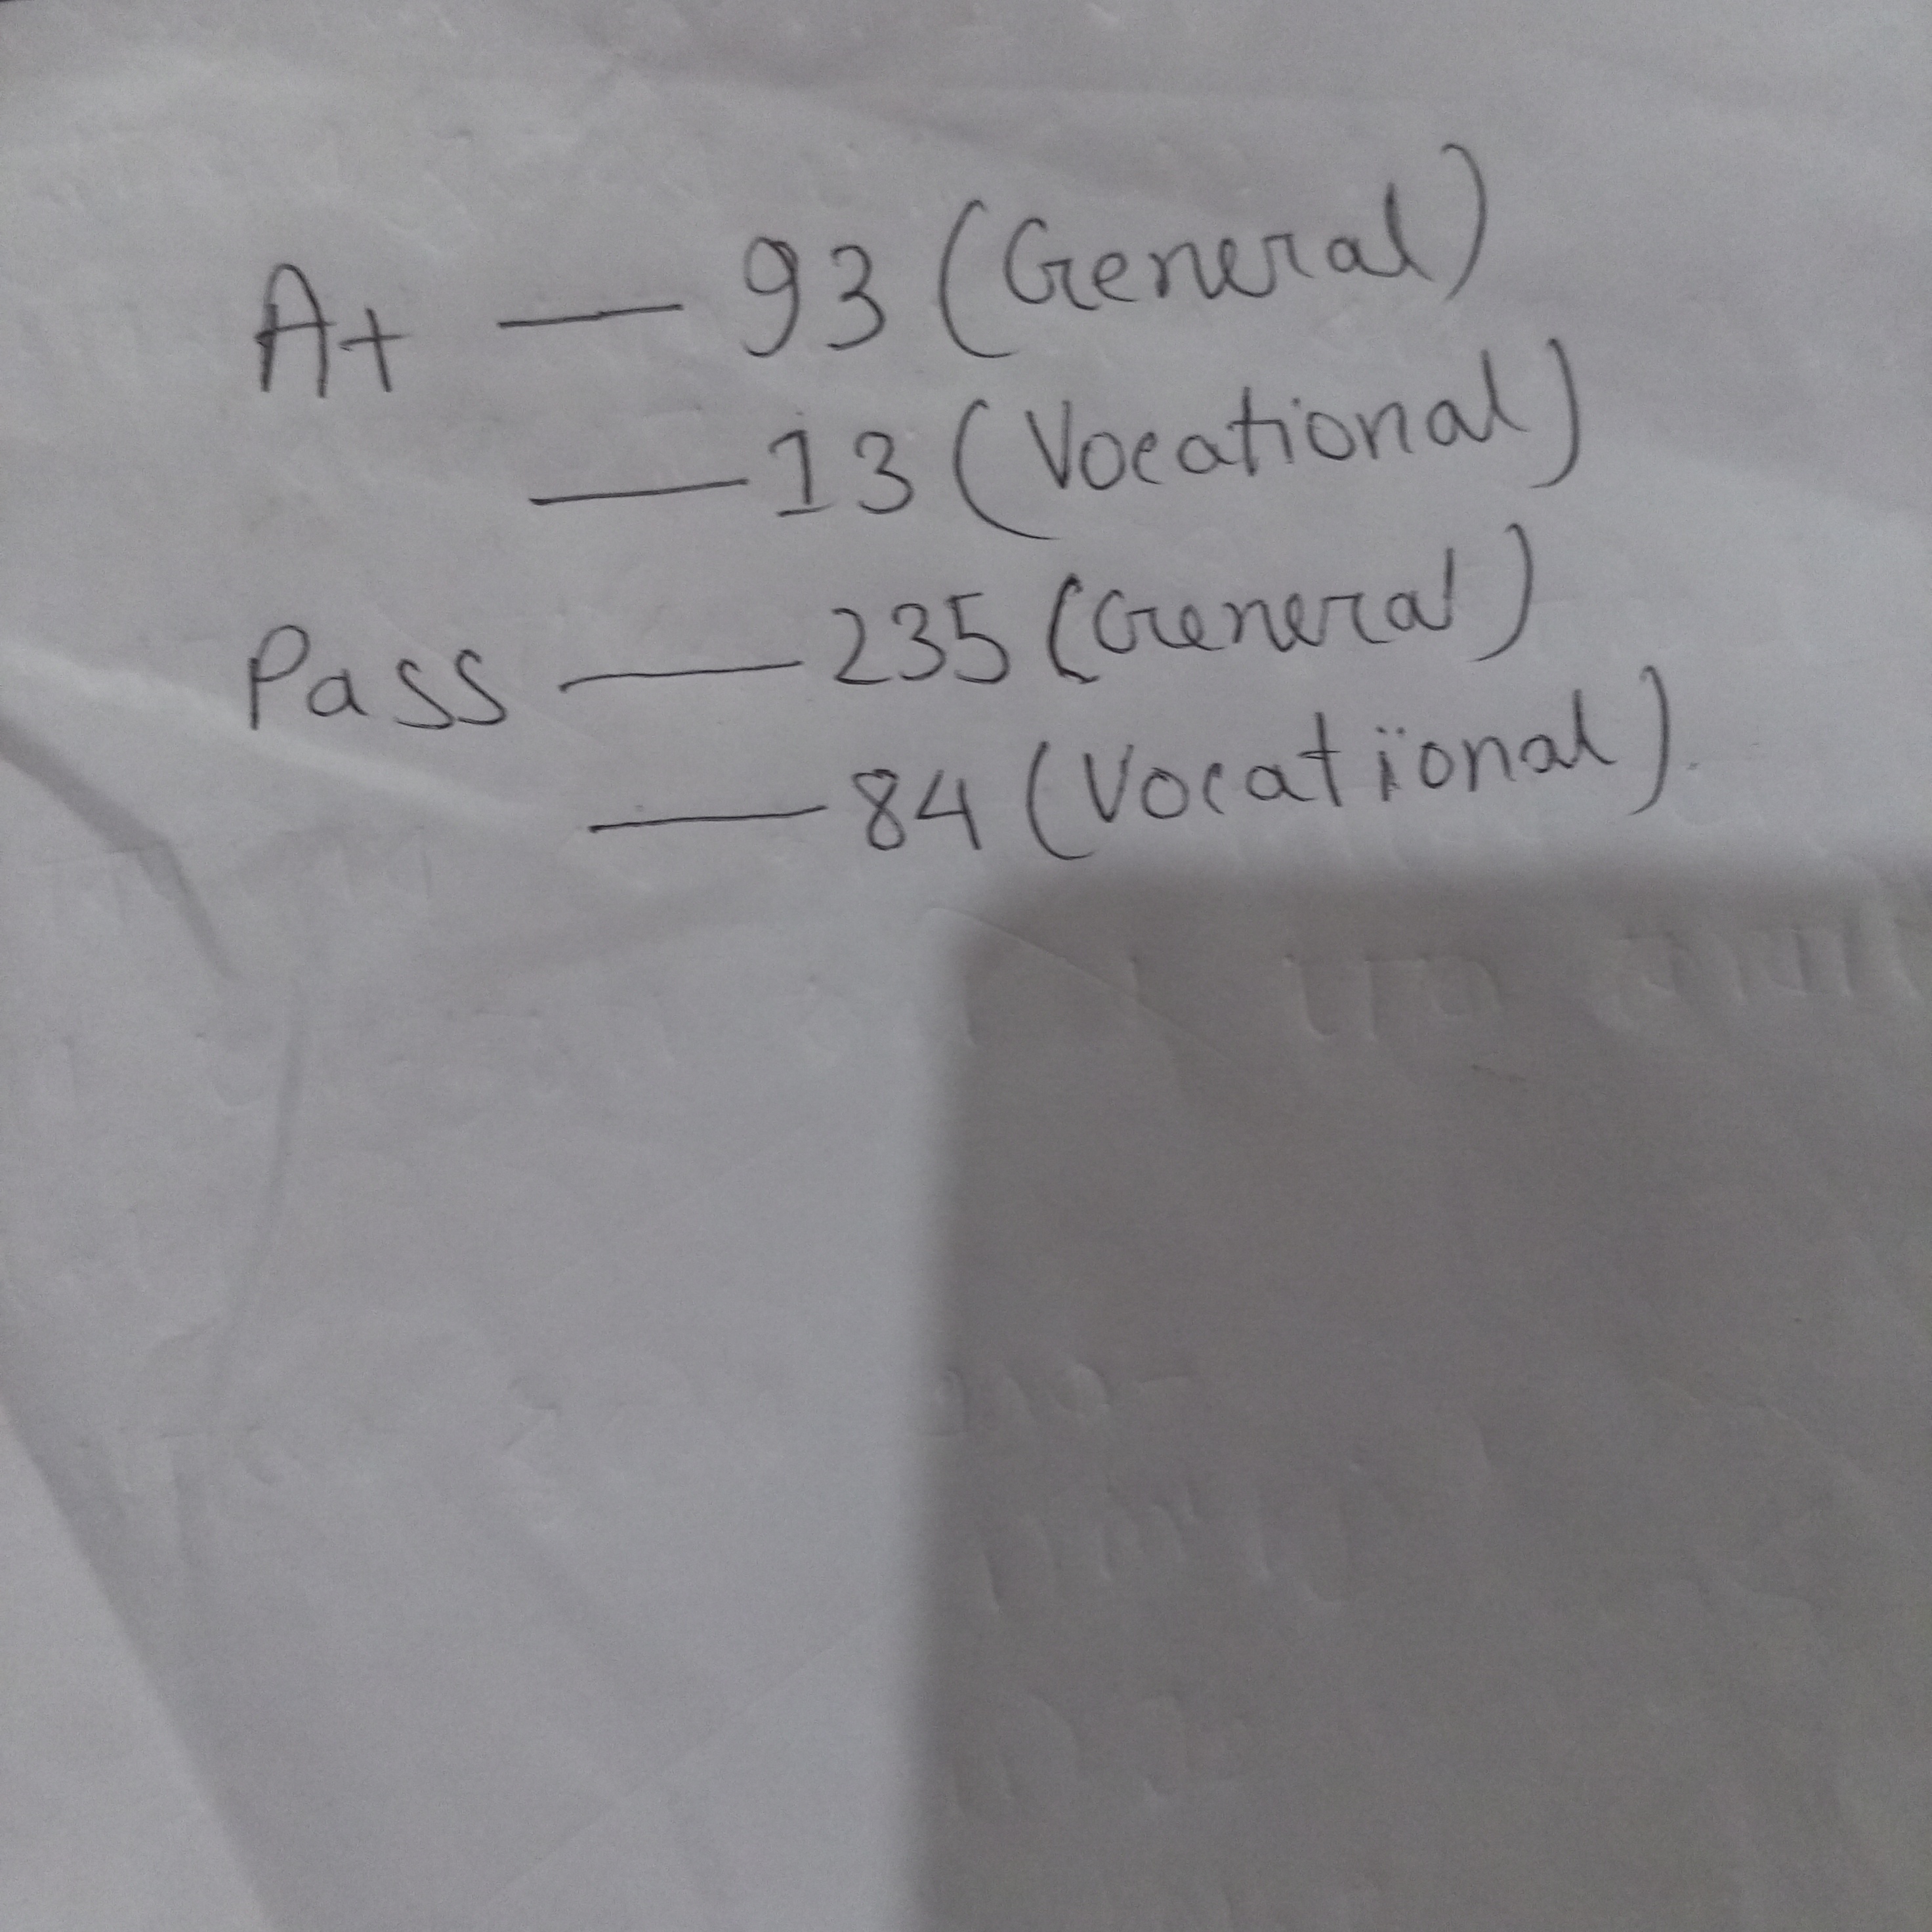 A+ — 93 (General)
— 13 (Vocational)
Pass — 235 (General)
— 84 (Vocational)